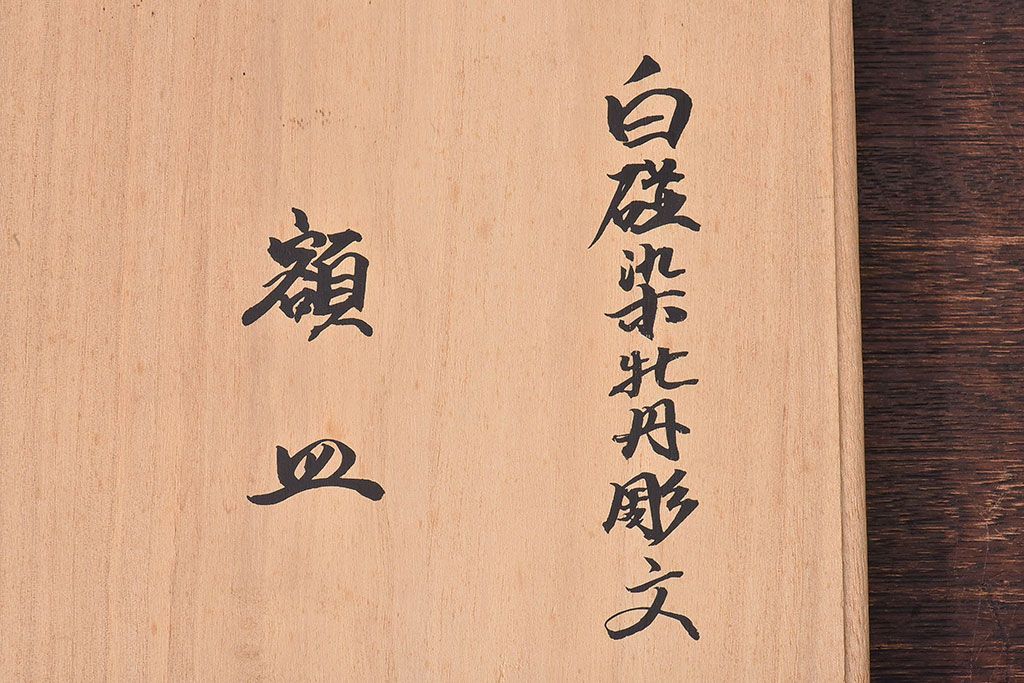 白磁染牡丹彫文
額皿